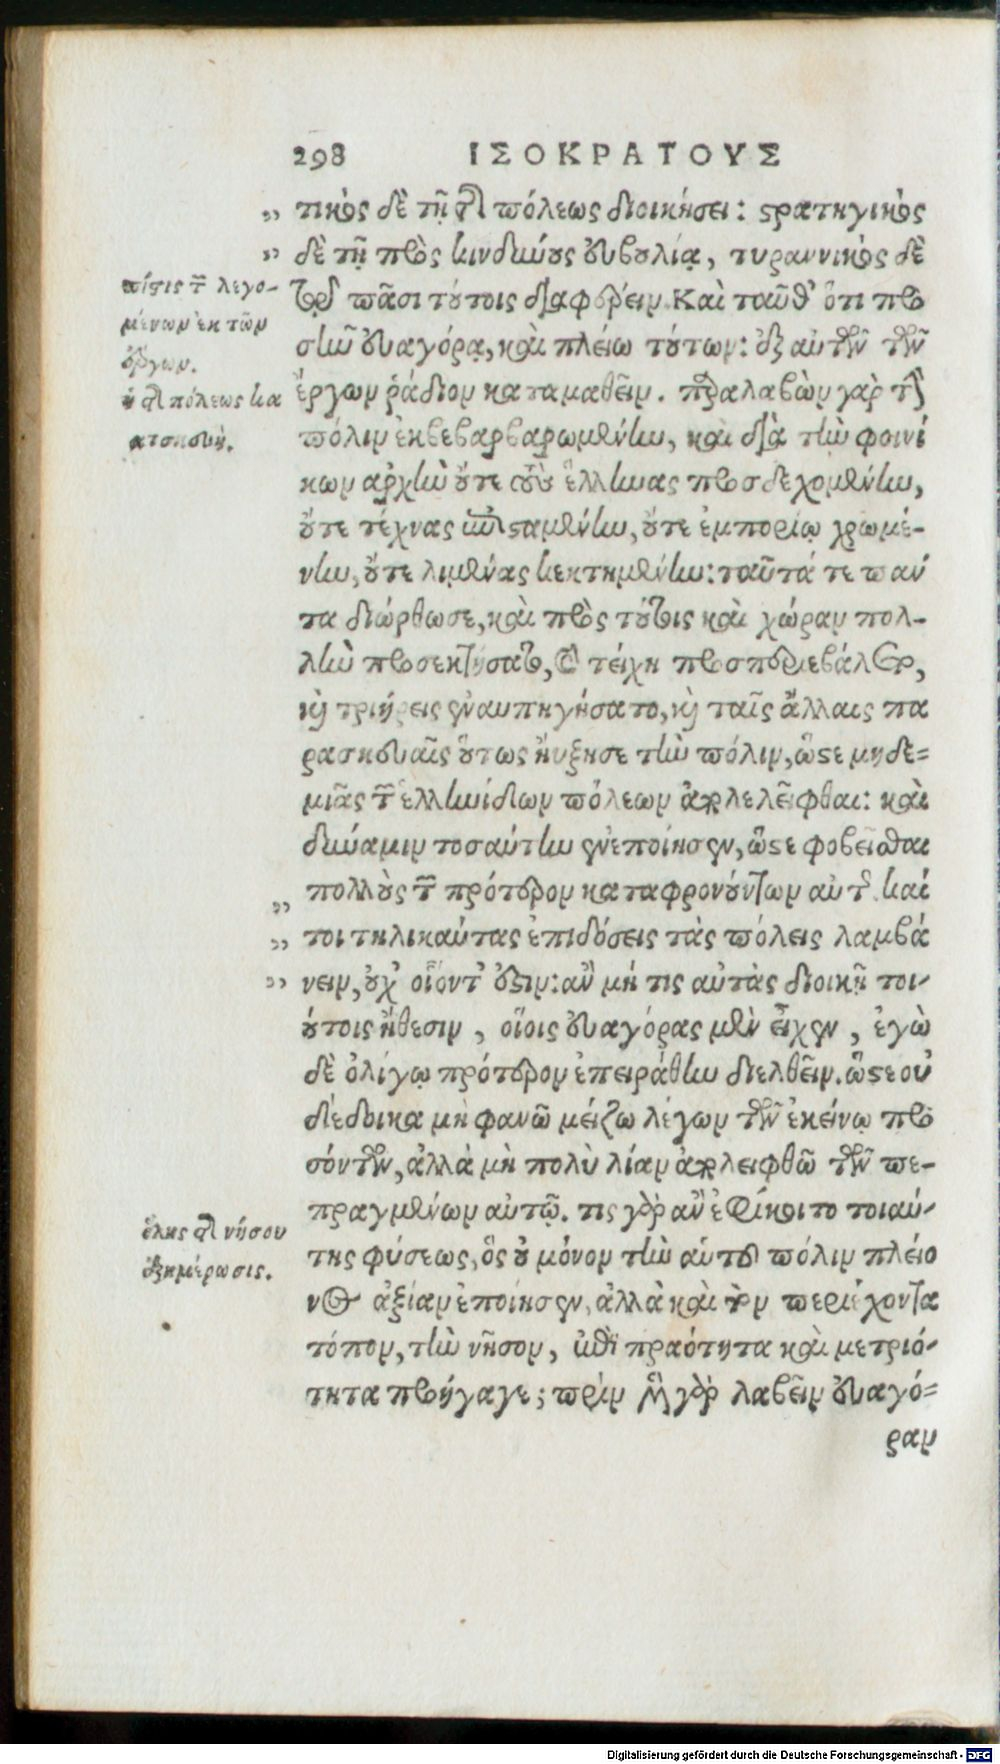 298 ΙΣΟΚΡΑΤΟΥΣ
τικὸς δὲ τῇ τῆς πόλεως διοικήσει: στρατηγικὸς
δὲ τῇ πρὸς κινδύνους εὐβουλίᾳ, τυραννικὸς δὲ
τῷ πᾶσι τούτοις διαφέρειν. Καὶ ταῦθ' ὅτι προ
σῆν εὐαγόρᾳ, καὶ πλείω τούτων: ἐξ αὐτῶν τῶν
ἔργων ῥᾴδιον καταμαθεῖν. παραλαβὼν γὰρ τὴν
πόλιν ἐκβεβαρβαρωμένην, καὶ διὰ τὴν φοινί
κων ἀρχὴν οὔτε τοὺς ἕλληνας προσδεχομένην,
οὔτε τέχνας ἐπισταμένην, οὔτε ἐμπορίῳ χρωμέ-
νην, οὔτε λιμένας κεκτημένην: ταῦτά τε πάν
τα διώρθωσε, καὶ πρὸς τούτοις καὶ χώραν πολ-
λὴν προσεκτήσατο, καὶ τείχη προσπεριεβάλετο,
καὶ τριήρεις ἐναυπηγήσατο, καὶ ταῖς ἄλλαις πα
ρασκευαῖς οὕτως ηὔξησε τὴν πόλιν, ὥστε μηδε=
μιᾶς τῶν ἑλληνίδων πόλεων ἀπολελεῖφθαι: καὶ
δύναμιν τοσαύτην ἐνεποίησεν, ὥστε φοβεῖσθαι
πολλοὺς τῶν πρότερον καταφρονούντων αὐτῆς. καί
τοι τηλικαύτας ἐπιδόσεις τὰς πόλεις λαμβά
νειν, οὐχ οἷόντ' ἐστιν: ἂν μή τις αὐτὰς διοικῇ τοι-
ούτοις ἤθεσιν, οἵοις εὐαγόρας μὲν εἶχεν, ἐγὼ
δὲ ὀλίγῳ πρότερον ἐπειράθην διελθεῖν. ὥστε οὐ
δέδοικα μὴ φανῶ μείζω λέγων τῶν ἐκείνῳ προ
σόντων, ἀλλὰ μὴ πολὺ λίαν ἀπολειφθῶ τῶν πε-
πραγμένων αὐτῷ. τις γὰρ ἂν ἐφίκοιτο τοιαύ-
της φύσεως, ὃς οὐ μόνον τὴν αὑτοῦ πόλιν πλείο
νος ἀξίαν ἐποίησεν, ἀλλὰ καὶ τὸν περιέχοντα
τόπον, τὴν νῆσον, ἐπὶ πραότητα καὶ μετριό-
τητα προήγαγε; πρὶν μὲν γὰρ λαβεῖν εὐαγό=
ραν
πίστις τῶν λεγο-
μένων ἐκ τῶν
ἔργων.
ἡ τῆς πόλεως κα
ατσκευή.
ὅλης τῆς νήσου
ἐξημέρωσις.
Digitalisierung gefördert durch die Deutsche Forschungsgemeinschaft - DFG